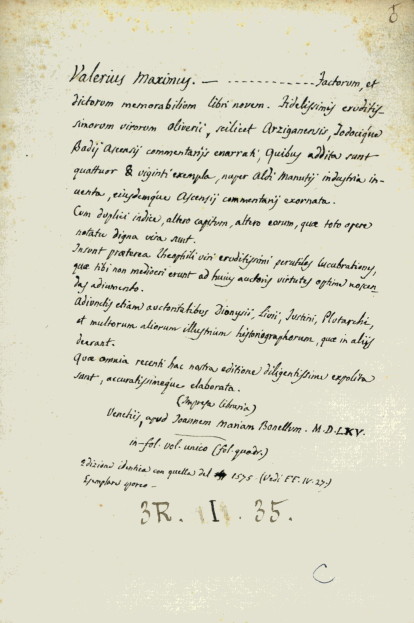 Valerius Maximus. — - - - - - - - - - - - Factorum, et
dictorum memorabilium libri novem. Fidelissimis eruditis-
simorum virorum Oliverij, scilicet Arziganensis, Jodocique
Badij Ascensij commentarijs enarrati, Quibus addita sunt
quattuor & viginti exempla, nuper Aldi Manutij industria in-
venta, eiusdemque Ascensij commentarij exornata.
Cum duplici indice, altero capitum, altero eorum, quae toto opere
notatu digna visa sunt.
Insunt praeterea Theophili viri eruditissimi perutiles lucubrationes,
quae tibi non mediocri erunt ad huius auctoris virtutes optime noscen-
das adiumento.
Adiunctis etiam auctoritatibus Dionysii, Livii, Justini, Plutarchi,
et multorum aliorum illustrium historiographorum, quae in aliis
deerant.
Quae omnia recenti hac nostra editione diligentissime expolita
sunt, accuratissimeque elaborata.
(Impresa libraria)
Venetiis, apud Joannem Mariam Bonellum. M.D.LXV.
in-fol. vol. unico (fol. quadr.)
Edizione identica con quella del 1575 (Vedi FF. IV. 27.)
Esemplare
3R. I. 35.
C